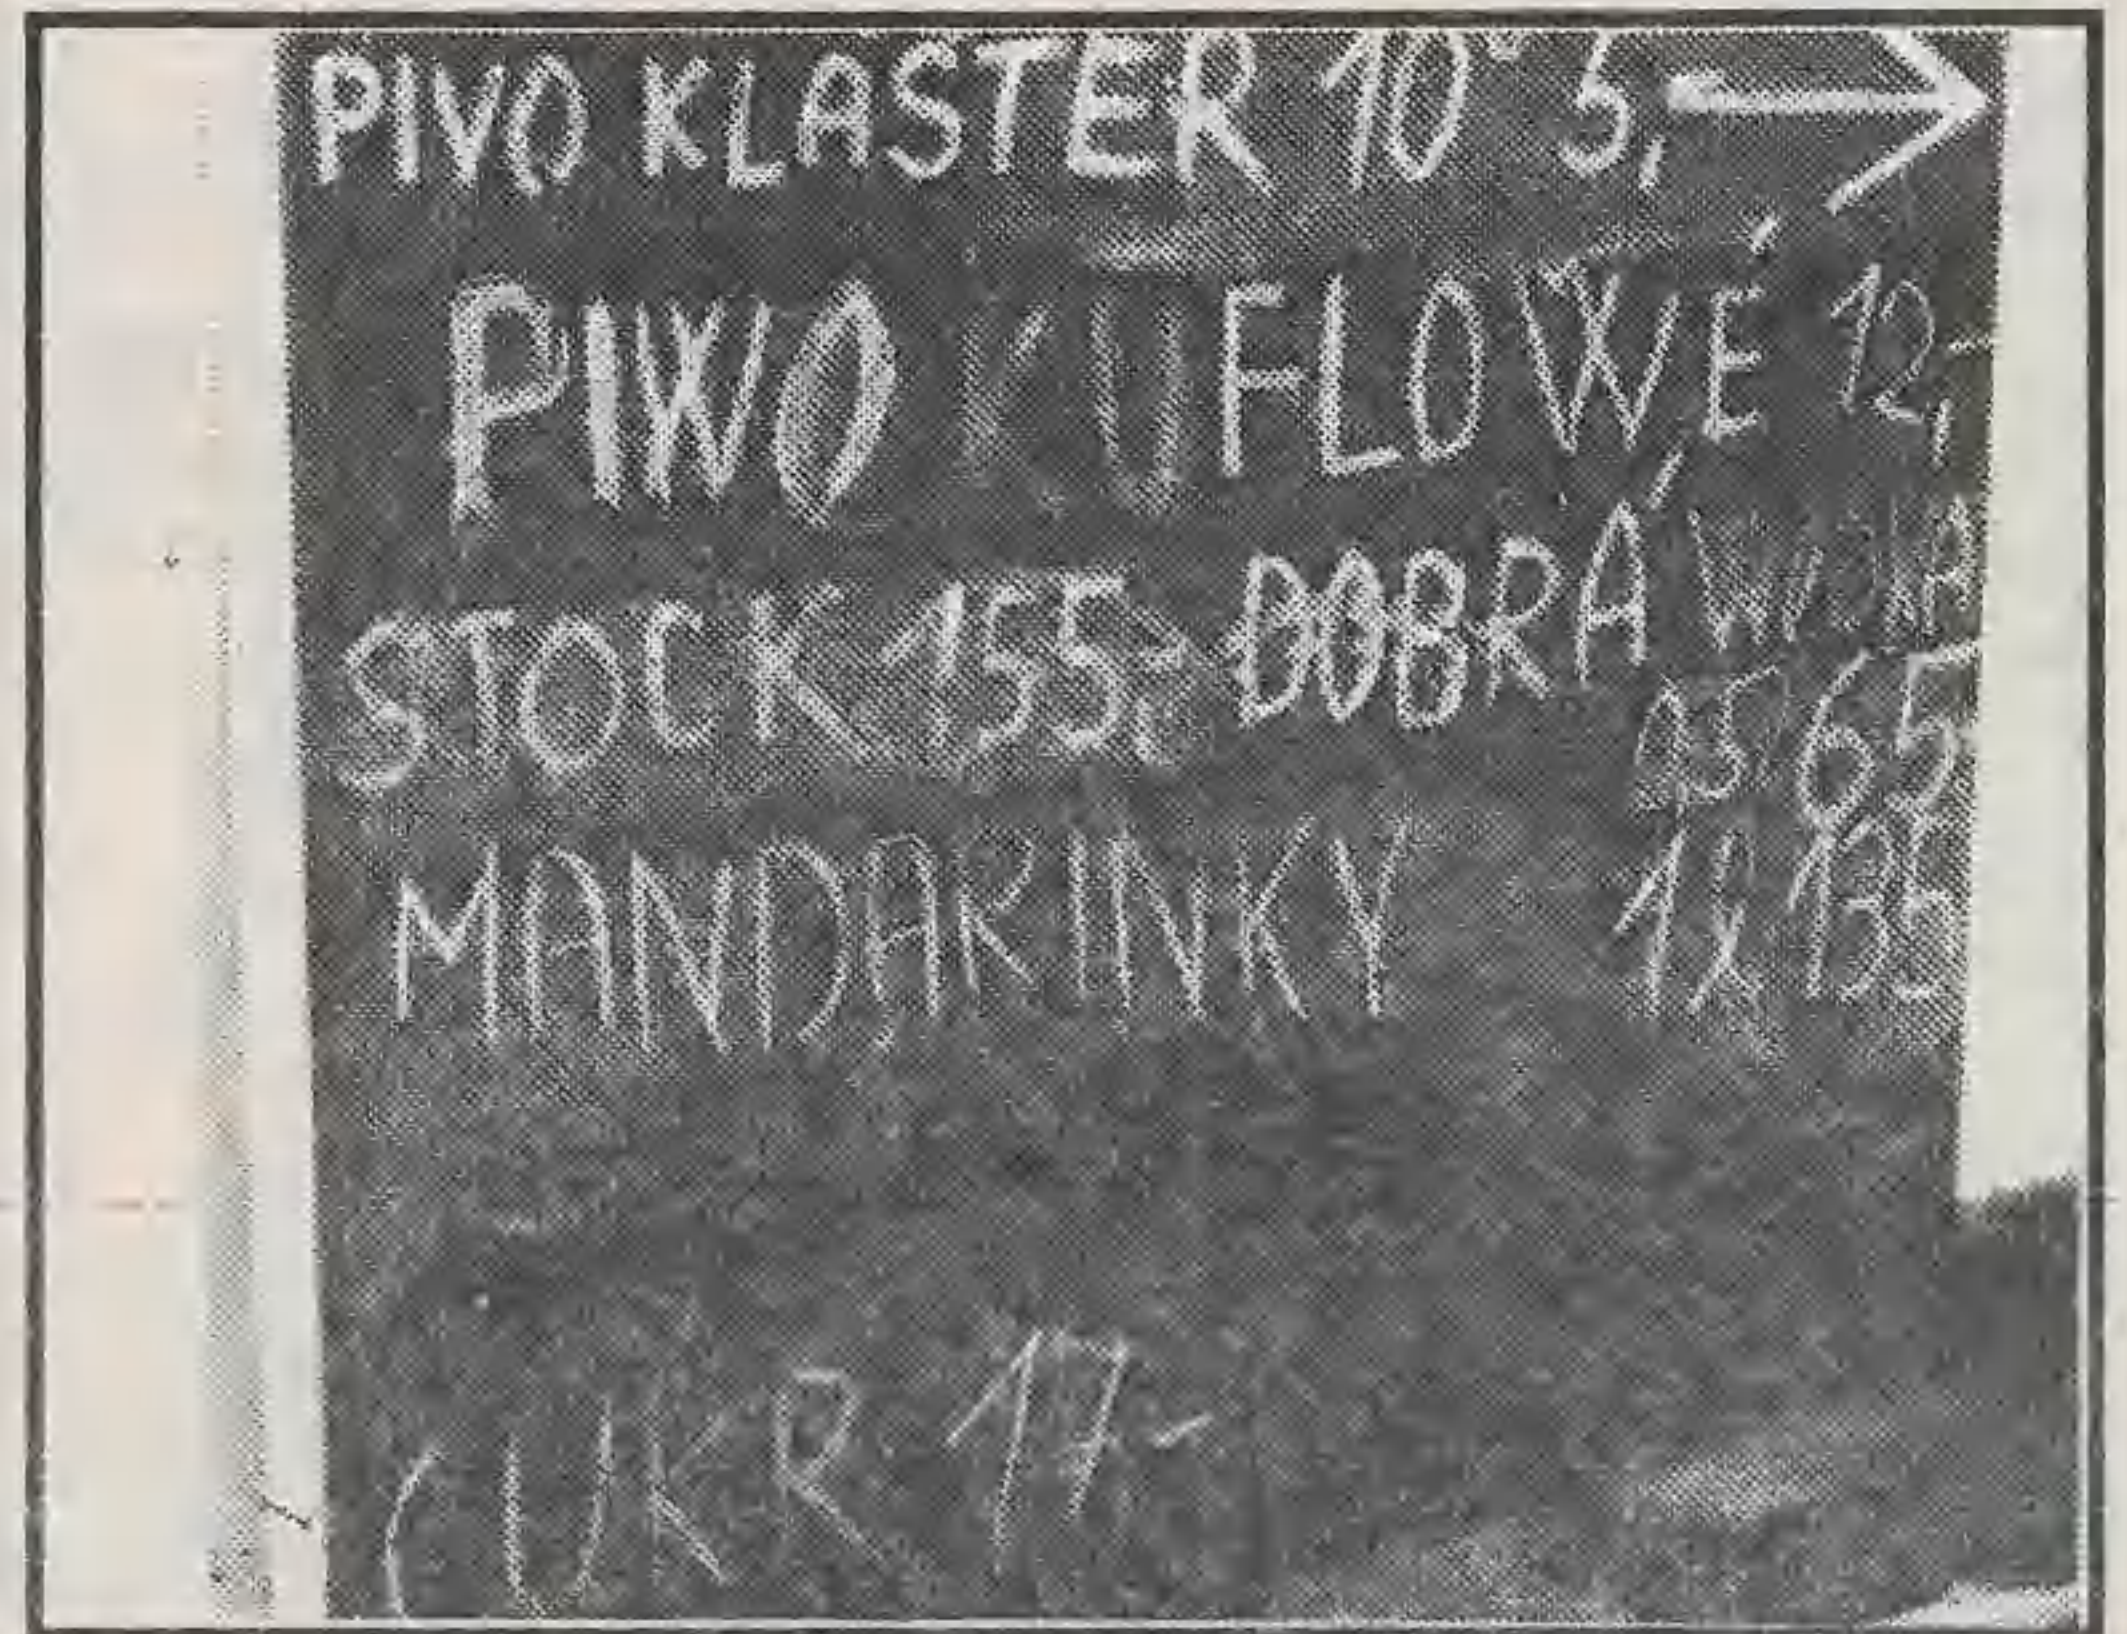 PIVO KLASTER 10° 5,
PIWO KUFLOWÉ 12,-
STOCK 155,- DOBRÁ
0,5 65
1l 135
MANDARINKY
CUKR 17-